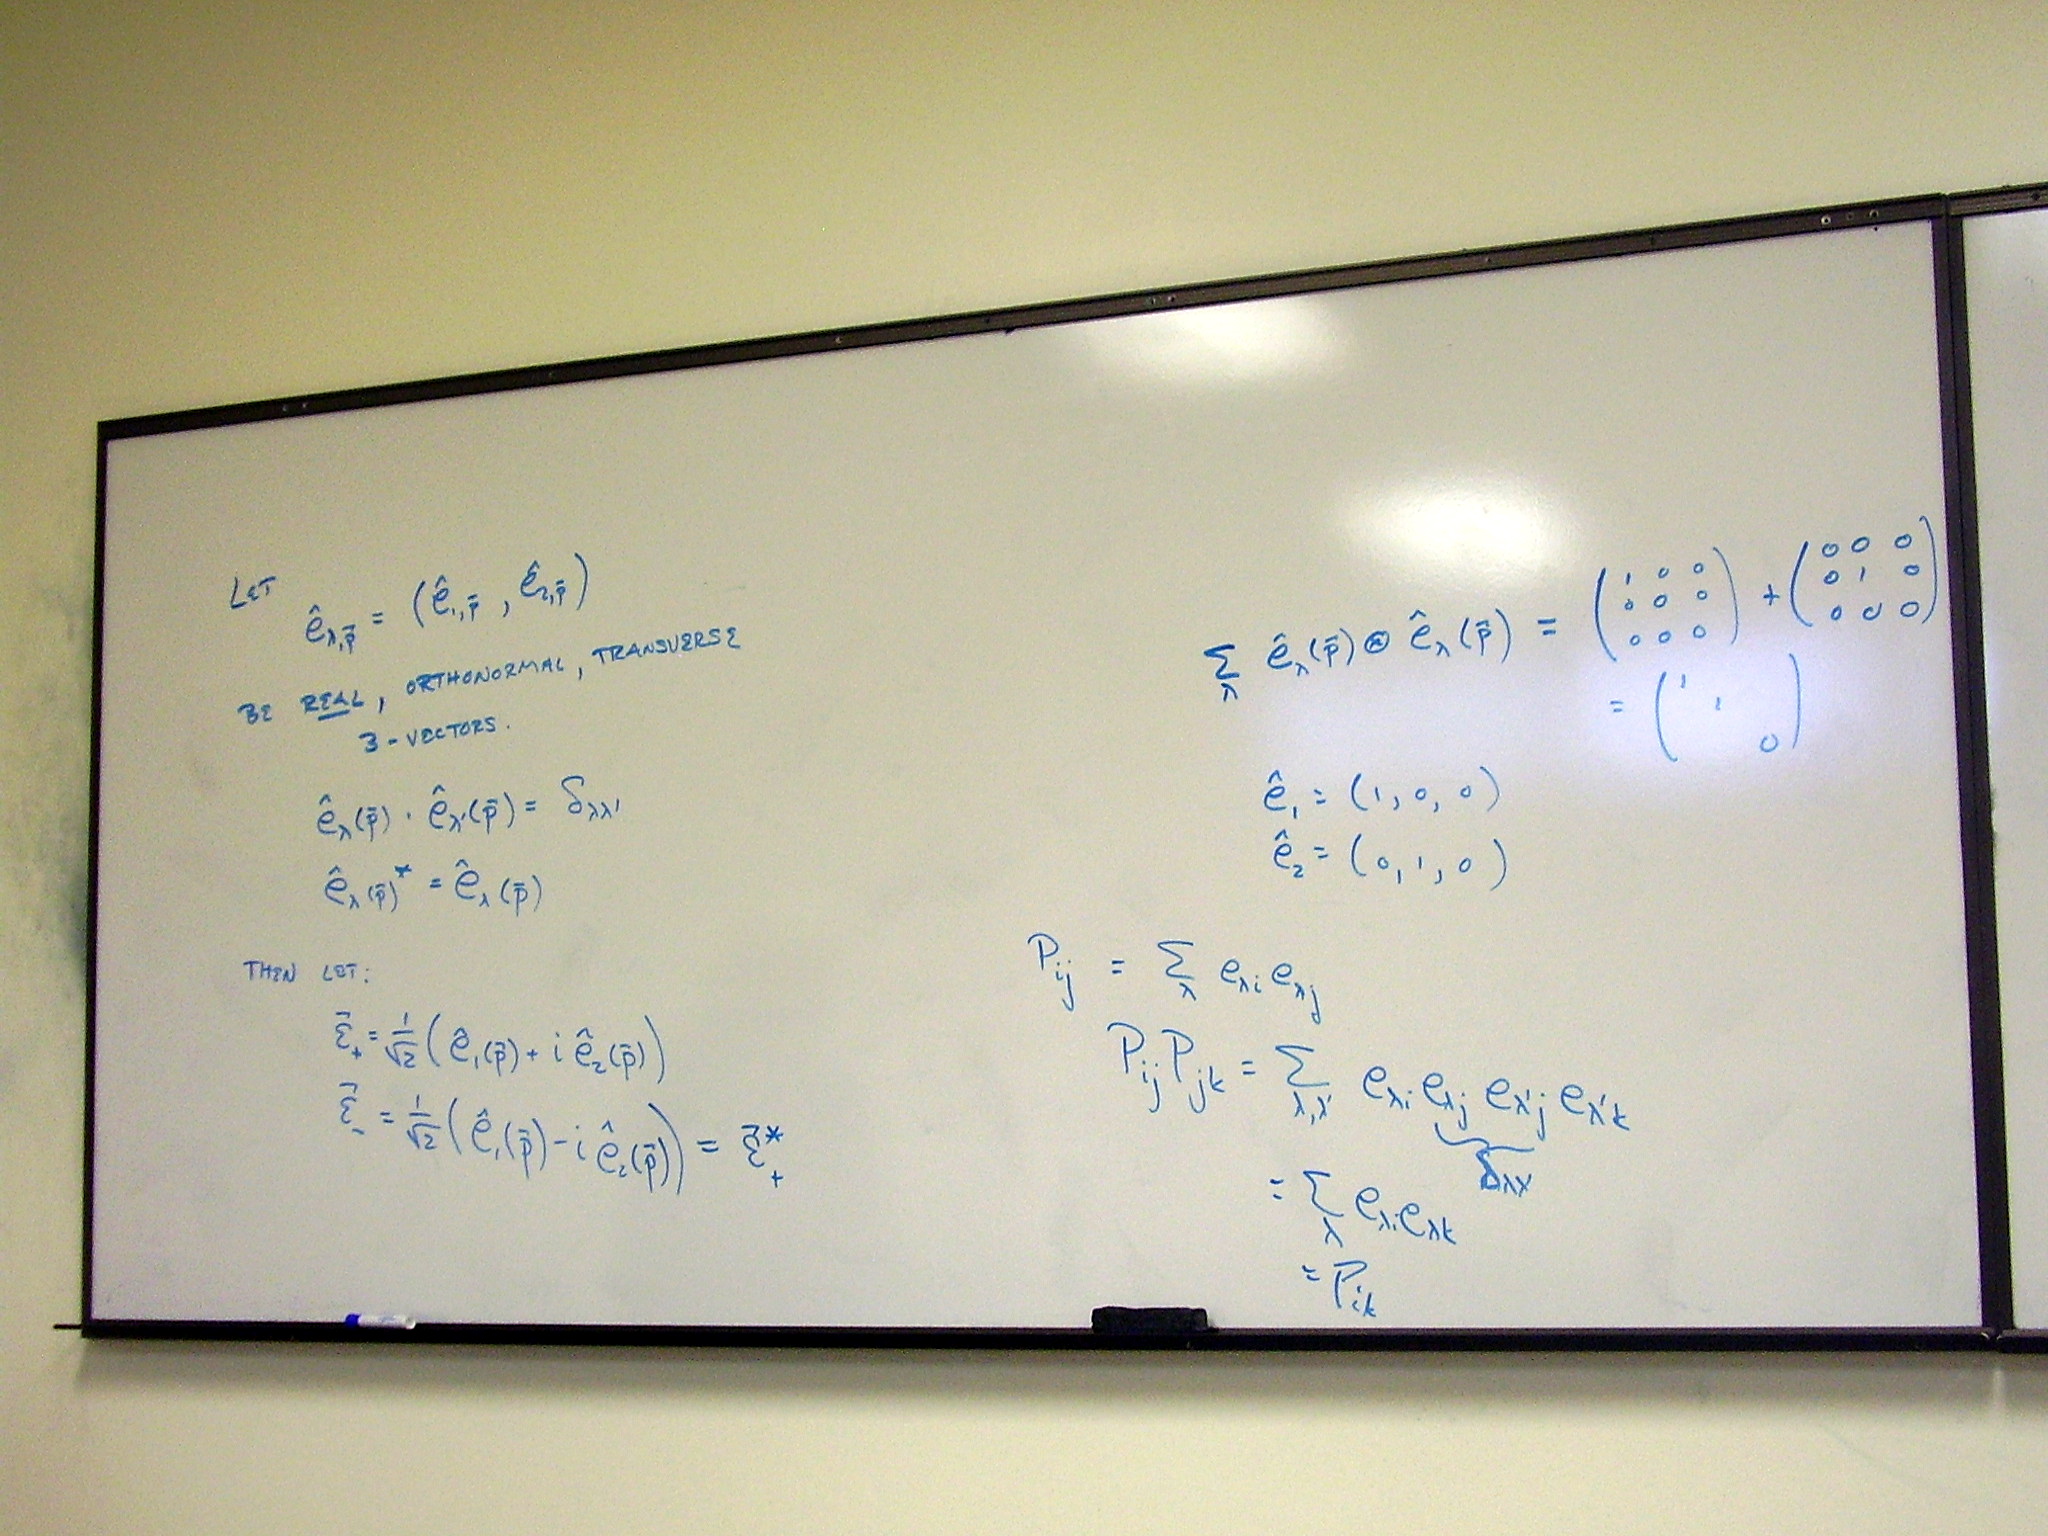 LET
ê_{λ,p̄} = (ê_{1,p̄}, ê_{2,p̄})
BE REAL, ORTHONORMAL, TRANSVERSE
3-VECTORS.
ê_λ(p̄) · ê_λ'(p̄) = δ_{λλ'}
ê_λ(p̄)* = ê_λ(p̄)
THEN LET:
ε̄_+ = 1/√2 (ê_1(p̄) + i ê_2(p̄))
ε̄_- = 1/√2 (ê_1(p̄) - i ê_2(p̄)) = ε̄_+*
Σ_λ ê_λ(p̄) ⊗ ê_λ(p̄) = (1 0 0 / 0 0 0 / 0 0 0) + (0 0 0 / 0 1 0 / 0 0 0)
= (1 / 1 / 0)
ê_1 = (1, 0, 0)
ê_2 = (0, 1, 0)
P_{ij} = Σ_λ e_{λi} e_{λj}
P_{ij} P_{jk} = Σ_{λ,λ'} e_{λi} e_{λj} e_{λ'j} e_{λ'k}
δ_{λλ'}
= Σ_λ e_{λi} e_{λk}
= P_{ik}